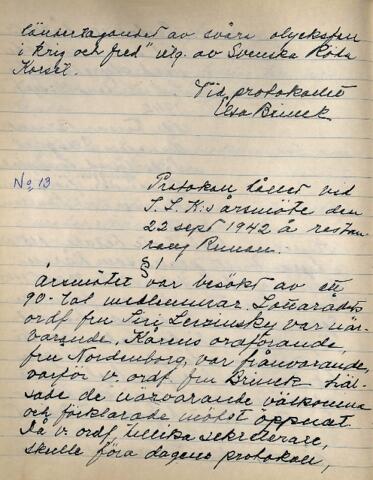 händertagandet av svåra olycksfall
i krig och fred" utg. av Svenska Röda
Korset.
Vid protokollet
Elsa Brinck
No 13
Protokoll hållet vid
S.L.K:s årsmöte den
22 sept 1942 å restau-
rang Runan.
§ 1
Årsmötet var besökt av ett
90-tal medlemmar. Lottarådets
ordf. fru Siri Leszinsky var när-
varande. Kårens ordförande,
fru Nordenborg, var frånvarande,
varför v. ordf. fru Brinck häl-
sade de närvarande välkomna
och förklarade mötet öppnat.
Då v. ordf., tillika sekreterare,
skulle föra dagens protokoll,